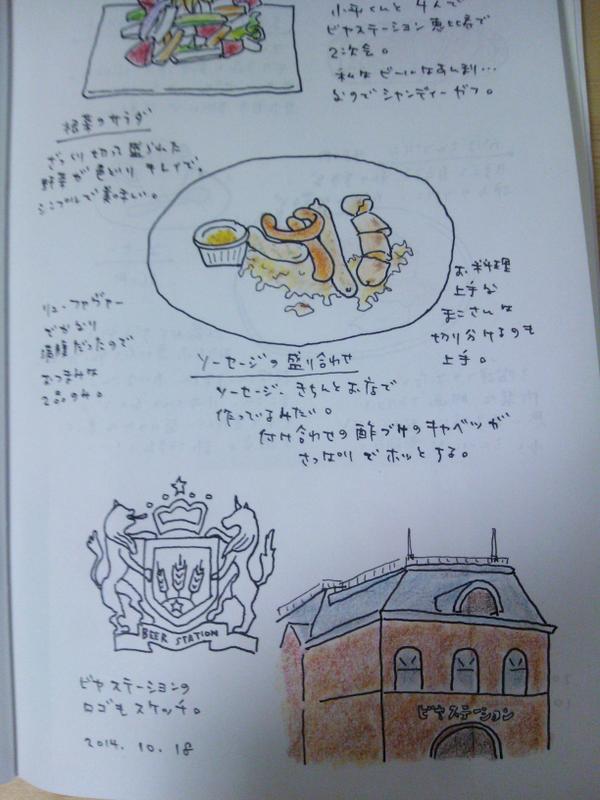 小平くんと4人で
ビヤステーション恵比寿で
2次会。
私はビールはあんまり…
なのでシャンディーガフ。
根菜のサラダ
ざっくり切って盛られた
野菜が色どりキレイで。
シンプルで美味しい。
お料理
上手な
まこさんは
切り分けるのも
上手。
リュ・ファヴァー
でかなり
満腹だったので
おつまみは
2品のみ。
ソーセージの盛り合わせ
ソーセージ、きちんとお店で
作ってるみたい。
付け合わせの酢づけのキャベツが
さっぱりでホッとする。
BEER STATION
ビヤステーションの
ロゴもスケッチ。
2014.10.18
ビヤステーション